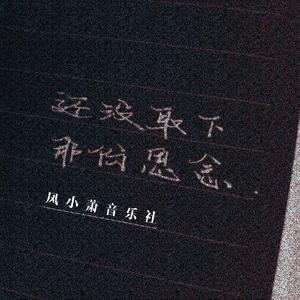 还没取下
那份思念.
凤小萧音乐社